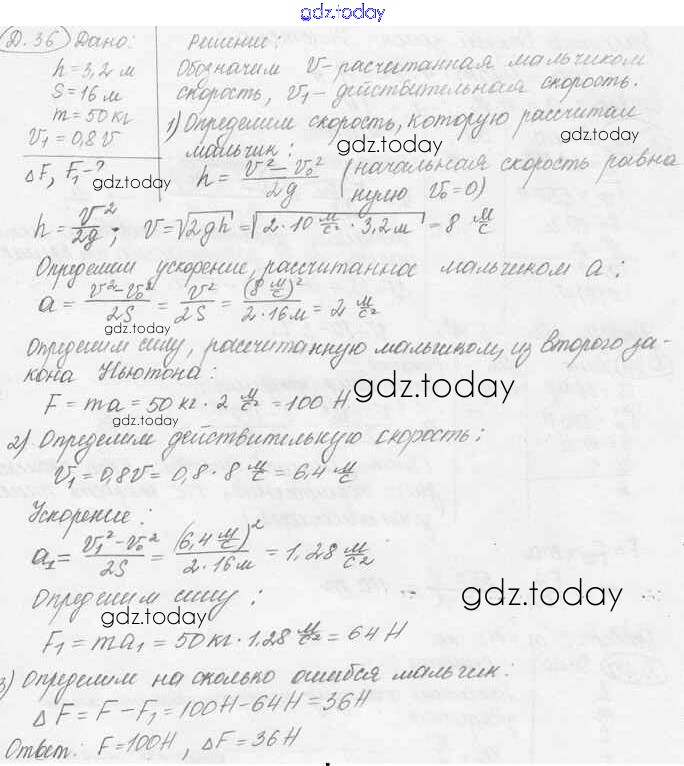 gdz.today
Д. 36 Дано:
h = 3,2 м
S = 16 м
m = 50 кг
v₁ = 0,8 v
ΔF, F₁ - ?
gdz.today
Решение:
Обозначим v - расчитанная мальчиком
скорость, v₁ - действительная скорость.
1) Определим скорость, которую рассчитал
мальчик:
gdz.today
h = (v² - v₀²)/2g (начальная скорость равна
нулю v₀ = 0)
h = v²/2g ; v = √2gh = √(2 · 10 м/с² · 3,2 м) = 8 м/с
Определим ускорение, рассчитанное мальчиком a:
a = (v² - v₀²)/2S = v²/2S = (8 м/с)²/(2 · 16 м) = 2 м/с²
gdz.today
Определим силу, рассчитанную мальчиком, из второго за-
кона Ньютона:
F = ma = 50 кг · 2 м/с² = 100 Н
gdz.today
gdz.today
2) Определим действительную скорость:
v₁ = 0,8v = 0,8 · 8 м/с = 6,4 м/с
Ускорение:
a₁ = (v₁² - v₀²)/2S = (6,4 м/с)²/(2 · 16 м) = 1,28 м/с²
Определим силу:
gdz.today
gdz.today
F₁ = ma₁ = 50 кг · 1,28 м/с² = 64 Н
3) Определим на сколько ошибся мальчик:
ΔF = F - F₁ = 100Н - 64Н = 36Н
Ответ: F = 100Н, ΔF = 36Н
gdz.today